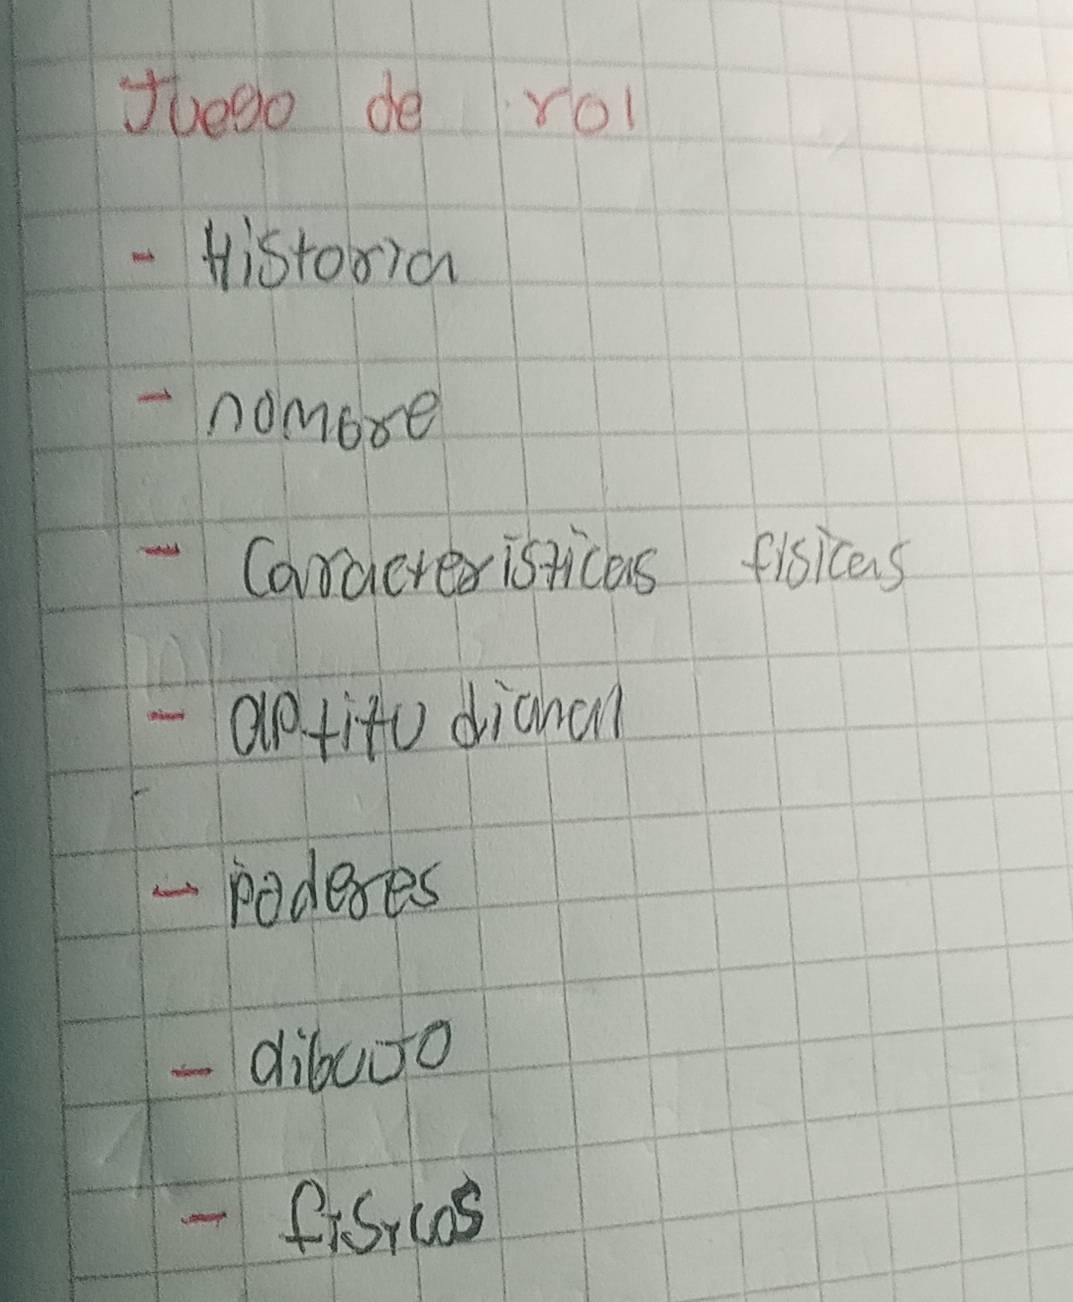 Juego de rol
- Historia
- nombre
- Caracteristicas fisicas
- aptitu dianal
- poderes
- dibujo
- fisicos